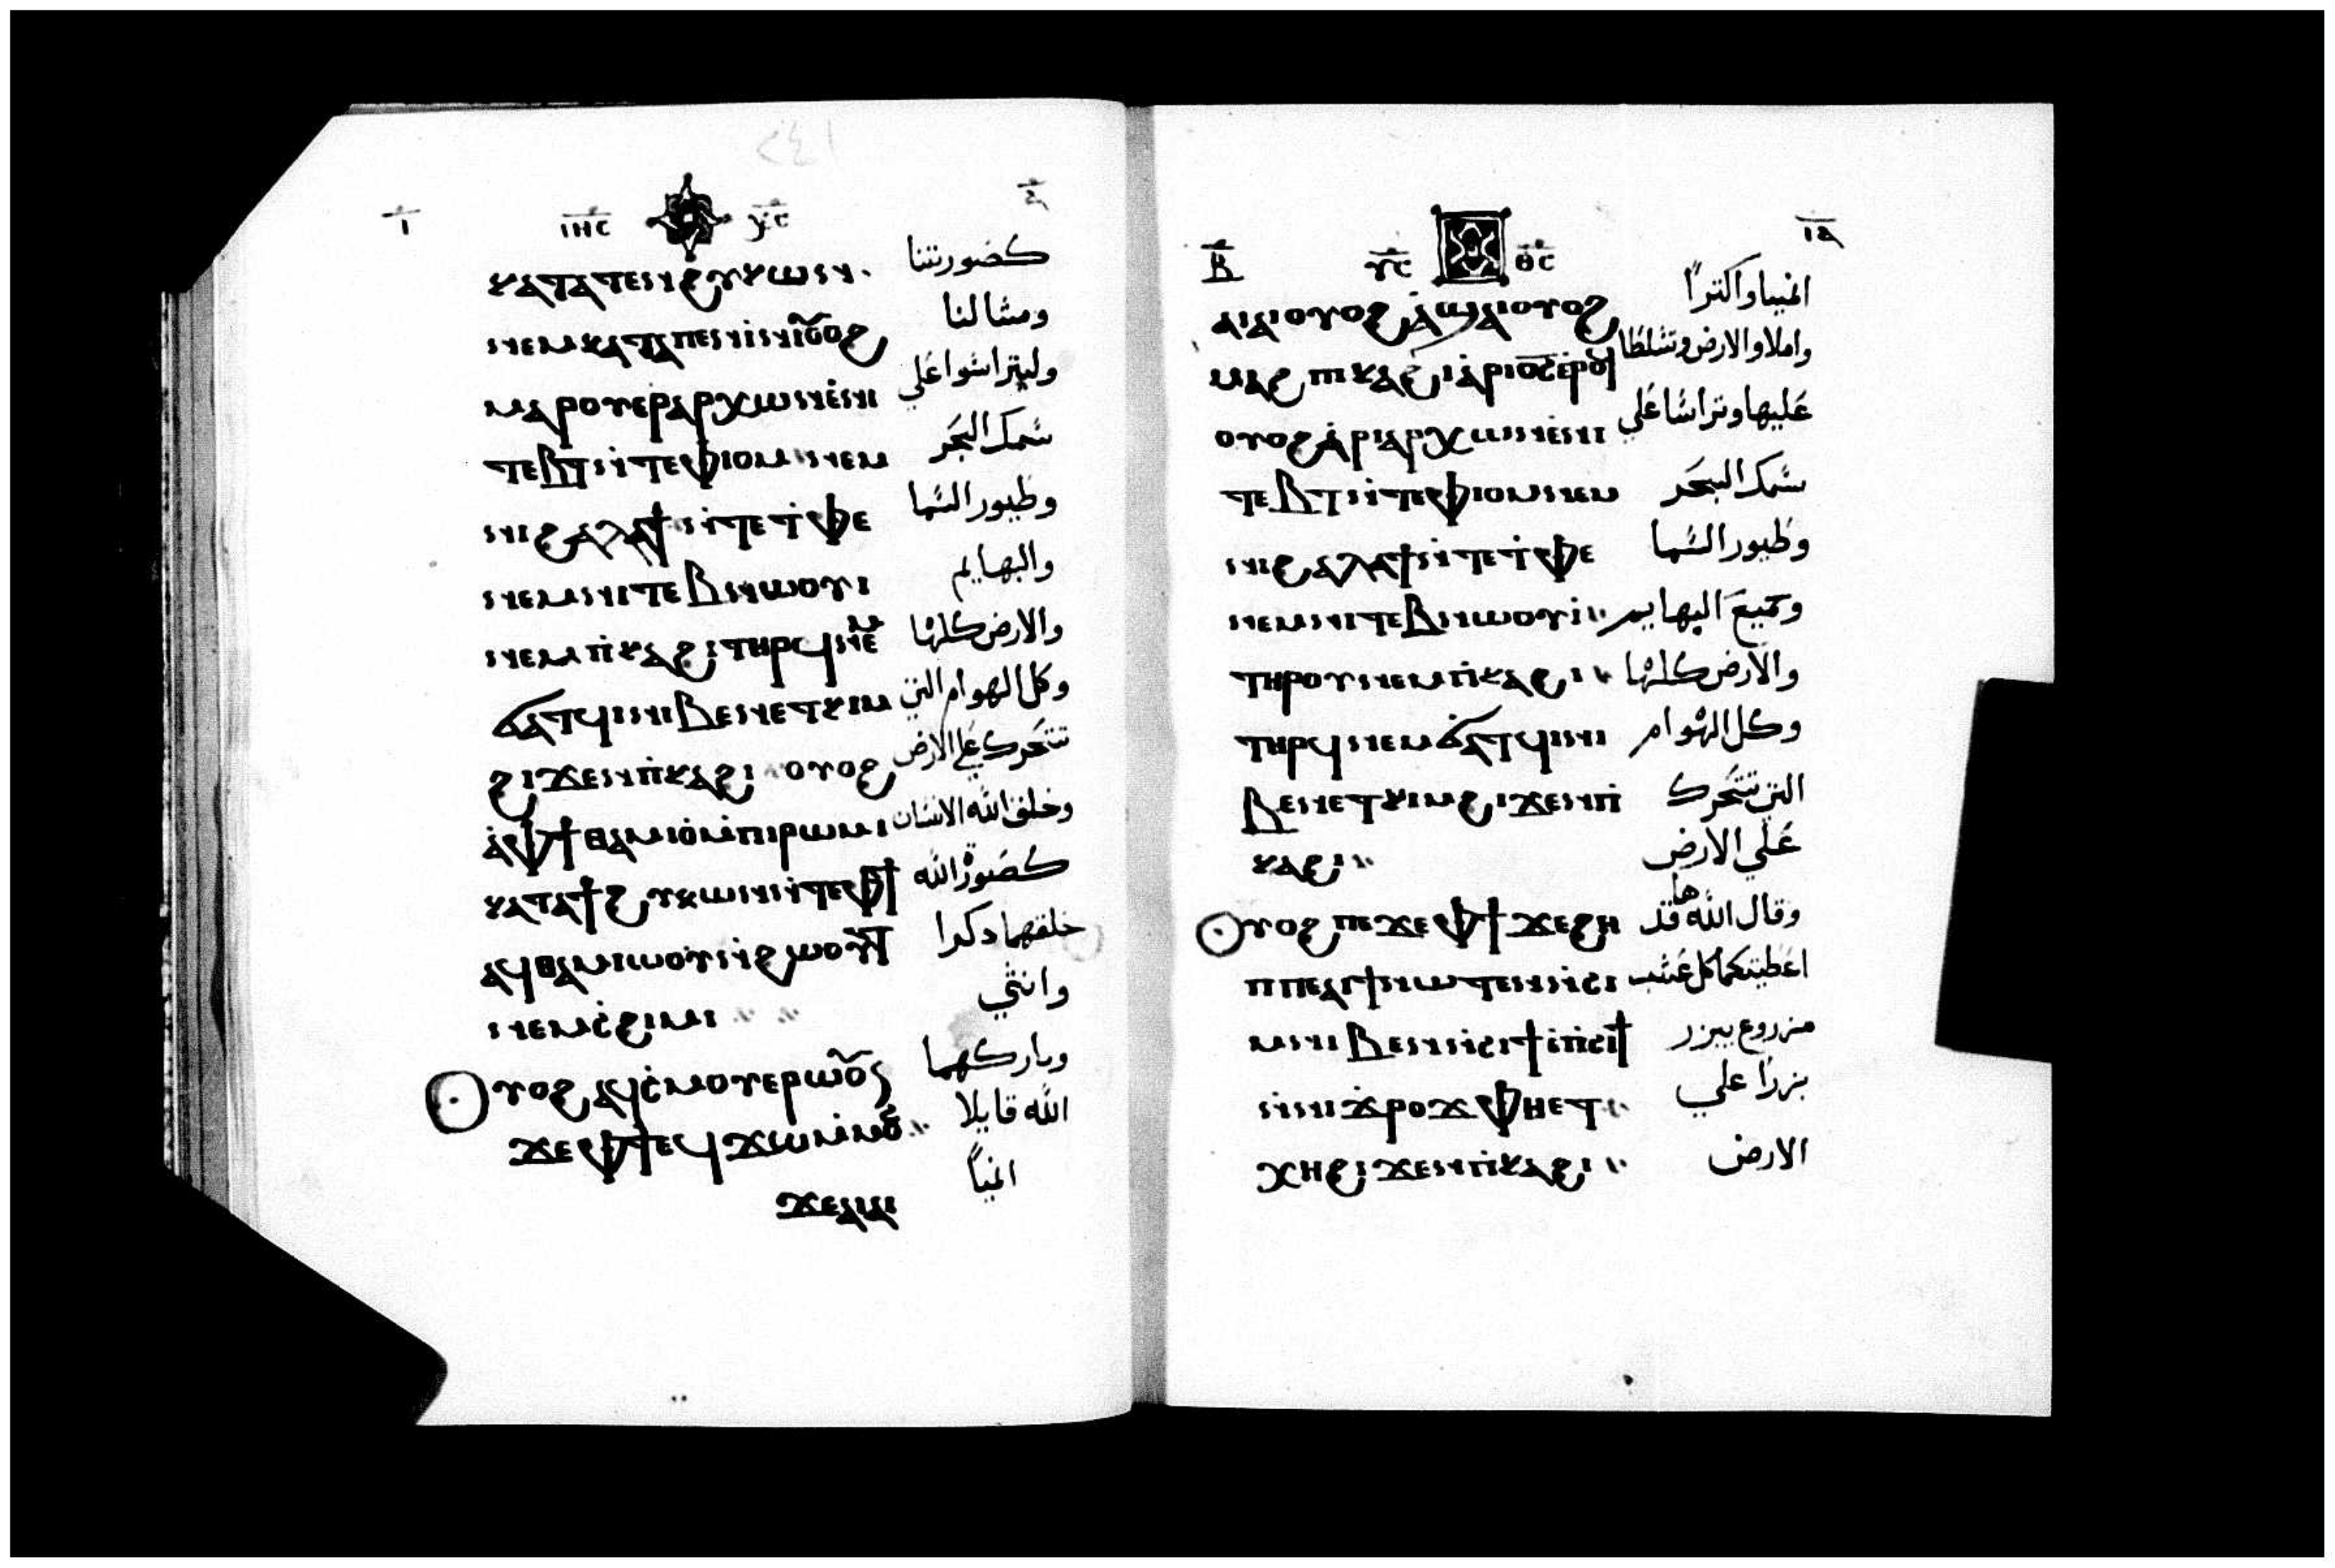 ⲓⲏⲥ ⲭⲥ
ⲕⲁⲧⲁ ⲧⲉⲛϩⲩⲕⲱⲛ كصورتنا
ⲛⲉⲙ ⲕⲁⲧⲁ ⲡⲉⲛⲓⲛⲓ ⲟⲩⲟϩ ومثالنا
ⲙⲁⲣⲟⲩⲉⲣⲁⲣⲭⲱⲛ ⲉⲛⲓ وليتراسوا علي
ⲧⲉⲃⲧ ⲛⲧⲉ ⲫⲓⲟⲙ ⲛⲉⲙ سمك البحر
ⲛⲓϩⲁⲗⲁϯ ⲛⲧⲉ ⲧⲫⲉ وطيور السما
ⲛⲉⲙ ⲛⲓⲧⲉⲃⲛⲱⲟⲩⲓ والبهايم
ⲛⲉⲙ ⲡⲕⲁϩⲓ ⲧⲏⲣϥ ⲛⲉⲙ والارض كلها
ϭⲁⲧϥⲓ ⲛⲓⲃⲉⲛ ⲉⲧⲕⲓⲙ وكل الهوام التي
ϩⲓϫⲉⲛ ⲡⲕⲁϩⲓ ⲟⲩⲟϩ تتحرك علي الارض
ⲁ ⲫϯ ⲑⲁⲙⲓⲟ ⲙⲡⲓⲣⲱⲙⲓ وخلق الله الانسان
ⲕⲁⲧⲁ ϯϩⲩⲕⲱⲛ ⲛⲧⲉ ⲫϯ كصورة الله
ⲁϥⲑⲁⲙⲓⲱⲟⲩ ⲛϩⲱⲟⲩⲧ خلقهما دكرا
ⲛⲉⲙ ⲥϩⲓⲙⲓ وانثي
ⲟⲩⲟϩ ⲁϥⲥⲙⲟⲩ ⲉⲣⲱⲟⲩ وباركهما
ϫⲉ ⲫϯ ⲉϥϫⲱ ⲙⲙⲟⲥ الله قايلا
ϫⲉ ⲁⲓⲁⲓ انميا
ⲃ ⲩⲥ ⲑⲥ
ⲁⲓⲁⲓ ⲟⲩⲟϩ ⲁϣⲁⲓ ⲟⲩⲟϩ انميا واكترا
ⲙⲁϩ ⲡⲕⲁϩⲓ ⲁⲣⲓⲟⲥ ⲉⲣⲟϥ واملاوا الارض وتسلطا
ⲟⲩⲟϩ ⲁⲣⲓⲁⲣⲭⲱⲛ ⲉⲛⲓ عليها وتراسا علي
ⲧⲉⲃⲧ ⲛⲧⲉ ⲫⲓⲟⲙ ⲛⲉⲙ سمك البحر
ⲛⲓϩⲁⲗⲁϯ ⲛⲧⲉ ⲧⲫⲉ وطيور السما
ⲛⲉⲙ ⲛⲓⲧⲉⲃⲛⲱⲟⲩⲓ وجميع البهايم
ⲧⲏⲣⲟⲩ ⲛⲉⲙ ⲡⲕⲁϩⲓ والارض كلها
ⲧⲏⲣϥ ⲛⲉⲙ ϭⲁⲧϥⲓ ⲛⲓ وكل الهوام
ⲃⲉⲛ ⲉⲧⲕⲓⲙ ϩⲓϫⲉⲛ ⲡ التي تتحرك
ⲕⲁϩⲓ علي الارض
ⲟⲩⲟϩ ⲡⲉϫⲉ ⲫϯ ϫⲉ ϩⲏ وقال الله ها قد
ⲡⲡⲉ ⲁⲓϯ ⲛⲱⲧⲉⲛ ⲛⲥⲓ اعطيتكما كل عشب
ⲙ ⲛⲓⲃⲉⲛ ⲛⲥⲓϯ ⲉⲡⲥⲓϯ مزروع يبزر
ⲛⲛⲓϫⲣⲟϫ ⲫⲏⲉⲧ بزرا علي
ⲭⲏ ϩⲓϫⲉⲛ ⲡⲕⲁϩⲓ الارض